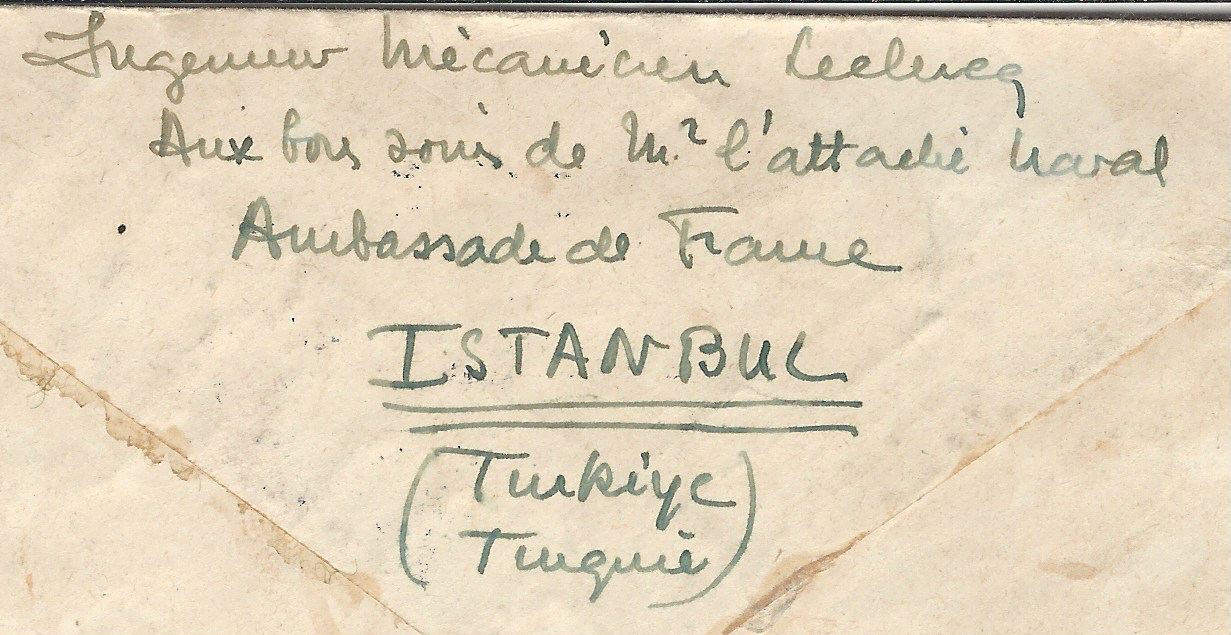 Ingenieur Mécanicien Leclercq
Aux bons soins de Mr l'attaché naval
Ambassade de France
ISTANBUL
(Turkiye
Turquie)